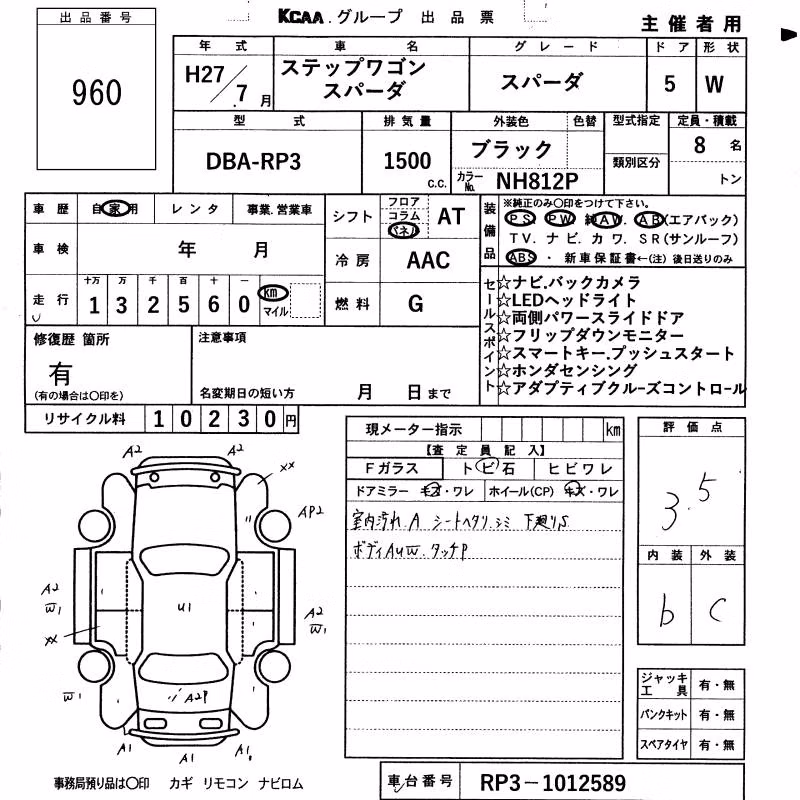 出品番号
960
KCAA.グループ 出品票
主催者用
年式 車名 グレード ドア 形状
H27/7月 ステップワゴン スパーダ スパーダ 5 W
型式 排気量 外装色 色替 型式指定 定員・積載
DBA-RP3 1500 C.C. ブラック 類別区分 8名
カラーNo. NH812P トン
車歴 自家用 レンタ 事業.営業車
車検 年 月
走行 十万 万 千 百 十 一
1 3 2 5 6 0 km マイル
シフト フロア コラム パネル AT
冷房 AAC
燃料 G
装備品 ※純正のみ〇印をつけて下さい。
PS PW 純AW. AB(エアバック)
TV. ナビ. カワ. SR(サンルーフ)
ABS ・ 新車保証書←(注) 後日送りのみ
セールスポイント
☆ナビ.バックカメラ
☆LEDヘッドライト
☆両側パワースライドドア
☆フリップダウンモニター
☆スマートキー.プッシュスタート
☆ホンダセンシング
☆アダプティブクルーズコントロール
修復歴 箇所
有
(有の場合は〇印を)
注意事項
名変期日の短い方 月 日まで
リサイクル料 10230円
現メーター指示 km
【査定員記入】
Fガラス トビ石 ヒビワレ
ドアミラー キズ・ワレ ホイール(CP) キズ・ワレ
室内汚れ A シートヘタリ.シミ 下廻りS
ボディAUW.タッチP
評価点
3.5
内装 外装
b C
ジャッキ工具 有・無
パンクキット 有・無
スペアタイヤ 有・無
A2 A2 XX
AP2
A2 W1 U1 A2 W1
XX
W1 A2P
A1 A1 A1
事務局預り品は〇印 カギ リモコン ナビロム
車台番号 RP3-1012589